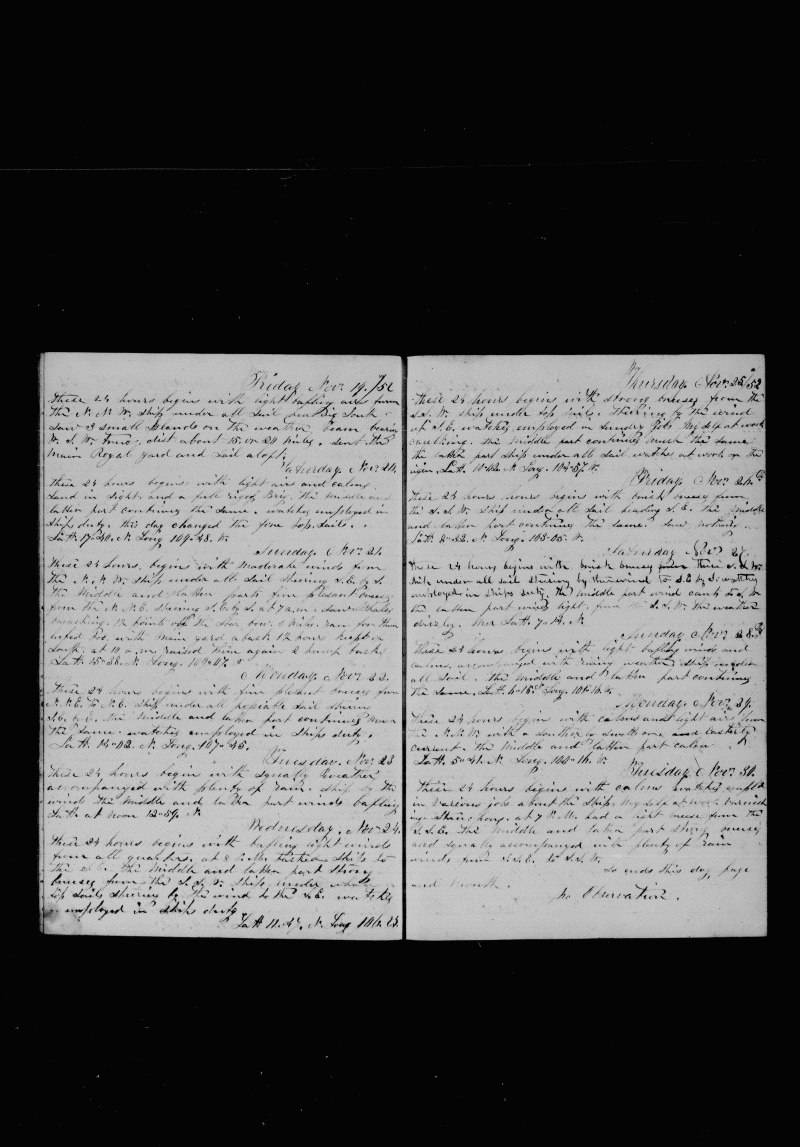 Friday Nov. 19. /52
These 24 hours begins with light baffling airs from
the N. N. W. Ship under all Sail
Saw 3 small Islands on the weather beam bearing
W. S. W. dist about 15 or 20 miles. sent the
main Royal yard and Sail aloft.
Saturday. Nov. 20.
These 24 hours begins with light airs and calms
Land in sight. and a full riged Brig. The middle and
latter part continues the same. watches employed in
Ships duty. this day changed the fore top. Sails.
Latt. 17-40. N. Long 109-48. W.
Sunday. Nov. 21.
These 24 hours, begins with moderate winds from
the N. N. W. Ship under all Sail Stering S.E. by S.
the middle and latter parts fin plesent breeses
from the N. N. E. Stering S.E. by S. at 7 a.m. Saw
breaching. 12 points off the Bow. run for them
with main yard aback 1/2 hour kept on
South. at 10 a.m raised them again 2 hump backs
Latt. 15-38. N. Long. 109-07. W
Monday. Nov. 22.
These 24 hours begins with fin plesent breeses from
N. N. E. to N. E. Ship under all Sail Stering
S.E. by E. the Middle and latter part continues
the Same. watches employed in Ships duty.
Latt. 14-02. N. Long. 107-45.
Tuesday. Nov. 23
These 24 hours begin with squaly weather
accompanyed with plenty of rain. Ship by the
wind the Middle and latter part winds baffling
Latt. at noon 12-59. N
Wednesday. Nov. 24.
These 24 hours begins with bafling light winds
from all quarters. at 8 P.M. Ship to
the S.E. the Middle and latter part Strong
breeses from the S. S. W. Ship under whole
top Sails Stering by the wind to the S.E. watches
employed in Ships duty
Latt 11. N. Long 106. 23.
Thursday. Nov. 25th /52
These 24 hours begins with strong breeses from the
S.S. W. Ship under top Sails. Stering by the wind
at S.E. watches employed on Sundry Jobs. My self at work
caulking. the middle part continues much the same
the latter part ship under all sail watches at work on the
Latt. 10-42 N Long. 104-57 W.
Friday. Nov. 26th
These 24 hours begins with brisk breesy from
the S.S.W. Ship under all Sail heading S.E. the Middle
and latter part continues the same. Saw nothing.
Latt. N. Long. 105-05. W.
Saturday Nov. 27.
These 24 hours begins with brisk breesy from there S.S.W.
Ship under all sail Stering by the wind to S.E. by S. watches
employed in Ships duty. the middle part wind cants to S. W.
the latter part winds light. from the S.S.W. the weather
drizly. Mer Latt. 7-14. N
Sunday Nov. 28th
These 24 hours begins with light bafling winds and
calms accompanyed with rainy weather. Ship under
all Sail. the middle and latter part continues
the same. Latt. 6-15. Long. 105-16. W.
Monday. Nov. 29.
These 24 hours begin with calms and light airs from
the N.N.W. with a southerly swell and Easterly
current. the middle and latter part calm.
Latt. 5-41. N. Long. 104-16. W.
Tuesday Nov. 30.
These 24 hours begins with calms watches employd
in Various jobs about the Ship. My self at work
at 7 P. M. had a light breese from the
S.S.E. the middle and latter part strong breesy
and squaly accompanyed with plenty of rain
winds from S.S.E. to S.S.W.
So ends this day, page
and Month.
No Observation.